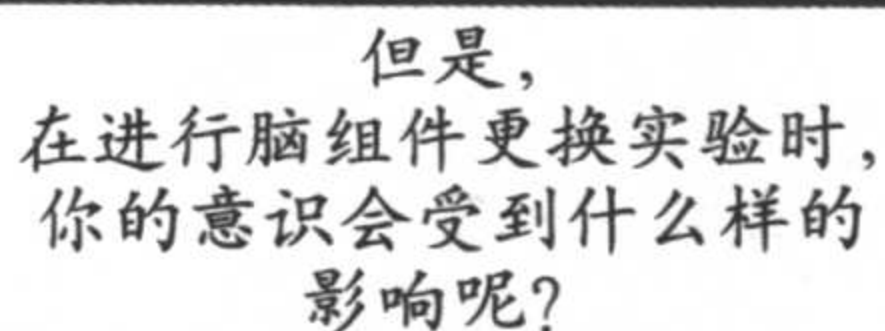 但是，
在进行脑组件更换实验时，
你的意识会受到什么样的
影响呢？